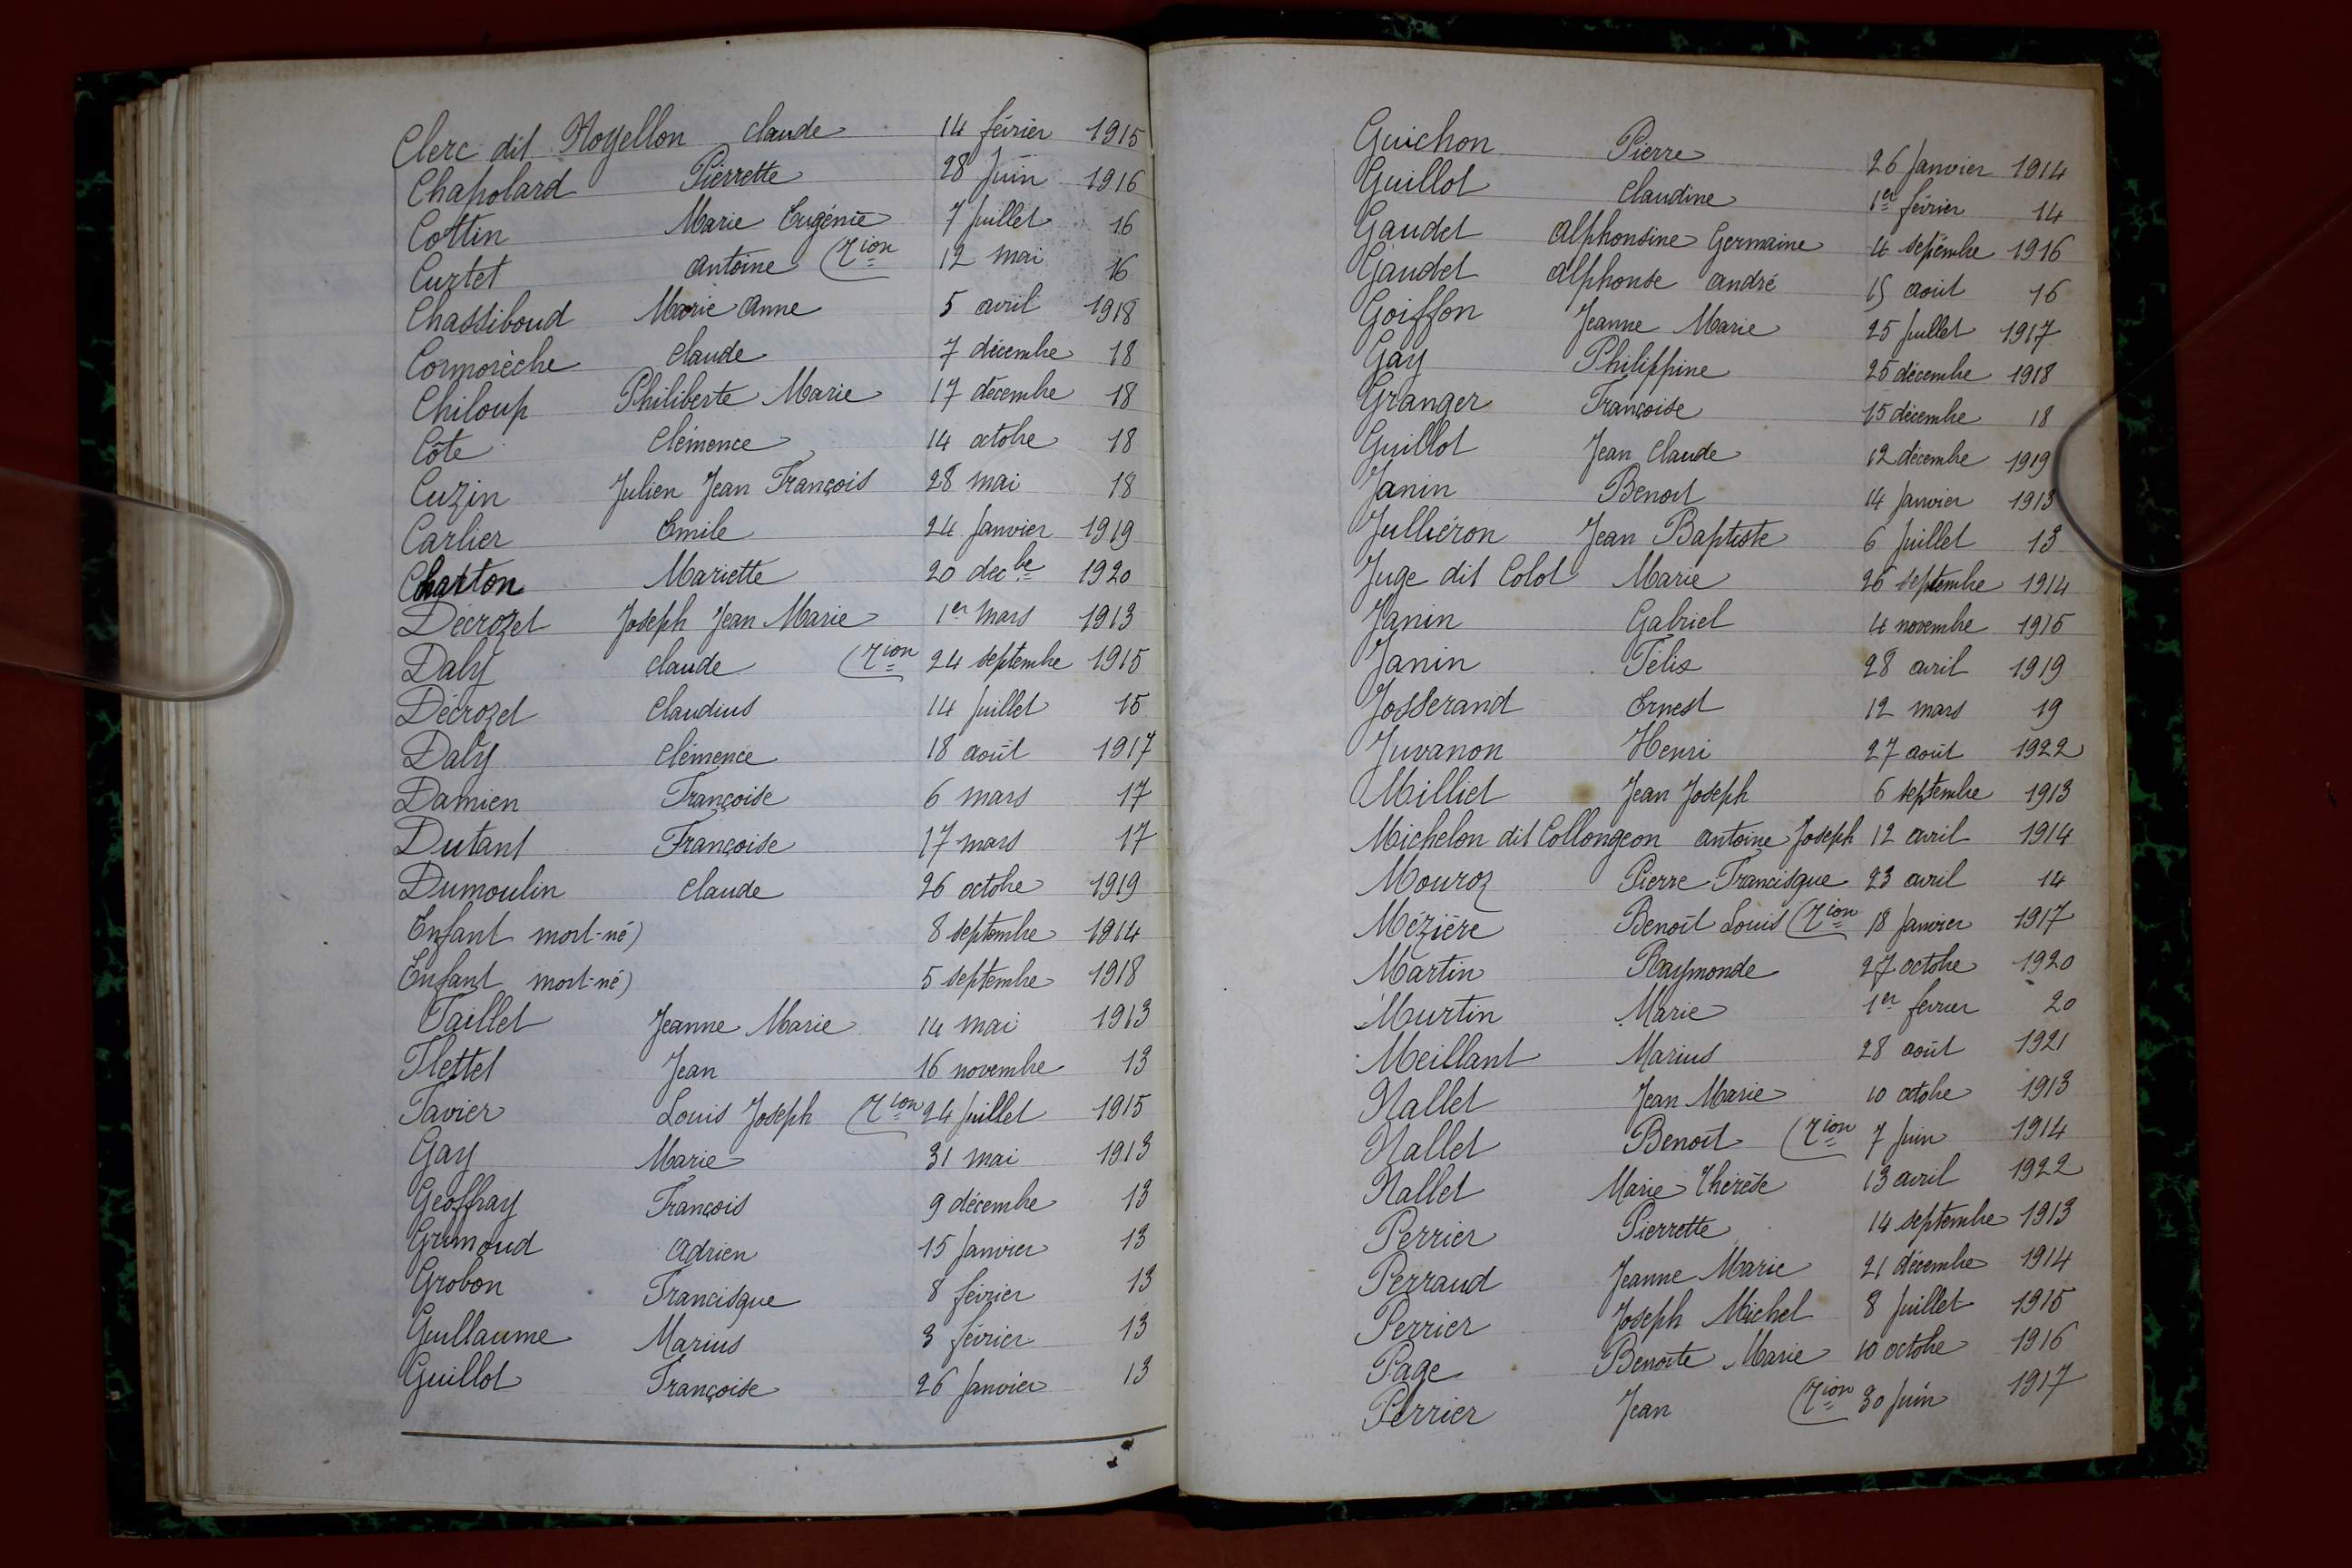 Clerc dit Noyellon Claude 14 février 1915
Chapolard Pierrette 28 Juin 1916
Cottin Marie Eugénie 7 Juillet 16
Curtet Antoine (Tion 12 mai 16
Chassiboud Marie Anne 5 avril 1918
Cormorèche Claude 7 décembre 18
Chiloup Philiberte Marie 17 décembre 18
Côte Clémence 14 octobre 18
Cuzin Julien Jean François 28 mai 18
Carlier Emile 24 Janvier 1919
Charton Mariette 20 decbe 1920
Décrozet Joseph Jean Marie 1er Mars 1913
Daly Claude (Tion 24 septembre 1915
Décrozet Claudius 14 Juillet 15
Daly Clémence 18 août 1917
Damien Françoise 6 mars 17
Dutant Françoise 17 mars 17
Dumoulin Claude 26 octobre 1919
Enfant mort-né) 8 septembre 1914
Enfant mort-né) 5 septembre 1918
Faillet Jeanne Marie 14 mai 1913
Flettet Jean 16 novembre 13
Favier Louis Joseph (Tion 24 Juillet 1915
Gay Marie 31 mai 1913
Geoffray François 9 décembre 13
Grimoud Adrien 15 Janvier 13
Grobon Francisque 8 février 13
Guillaume Marius 3 février 13
Guillot Françoise 26 Janvier 13
Guichon Pierre 26 Janvier 1914
Guillot Claudine 1er février 14
Gaudet Alphonsine Germaine 4 sepembre 1916
Gaudet Alphonse André 15 août 16
Goiffon Jeanne Marie 25 Juillet 1917
Gay Philippine 25 décembre 1918
Granger Françoise 15 décembre 18
Guillot Jean Claude 12 décembre 1919
Janin Benoit 14 Janvier 1913
Julliéron Jean Baptiste 6 Juillet 13
Juge dit Colot Marie 26 septembre 1914
Janin Gabriel 4 novembre 1915
Janin Félix 28 avril 1919
Josserand Ernest 12 mars 19
Juvanon Henri 27 août 1922
Milliet Jean Joseph 6 septembre 1913
Michelon dit Collongeon Antoine Joseph 12 avril 1914
Mouroz Pierre Francisque 23 avril 14
Mézière Benoît Louis (Tion 18 Janvier 1917
Martin Raymonde 27 octobre 1920
Murtin Marie 1er fevrier 20
Meillant Marius 28 août 1921
Nallet Jean Marie 10 octobre 1913
Nallet Benoît (Tion 7 Juin 1914
Nallet Marie Thérèse 13 avril 1922
Perrier Pierrette 14 septembre 1913
Perraud Jeanne Marie 21 décembre 1914
Perrier Joseph Michel 8 Juillet 1915
Page Benoîte Marie 10 octobre 1916
Perrier Jean (Tion 30 Juin 1917